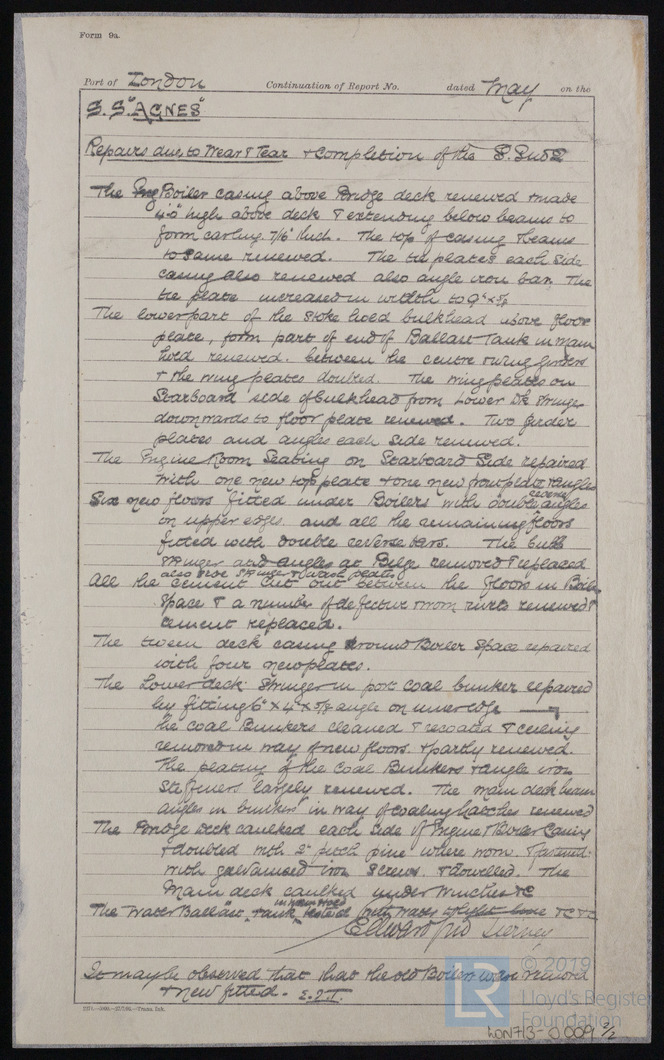 Form 9a.
Port of London Continuation of Report No. dated May on the
S.S. "AGNES"
Repairs due to Wear & Tear & Completion of the S.
The Boiler casing above Bridge deck renewed & made
4'0" high above deck & extending below beams to
form carling 7/16" thick. The top of casing & beams
to same renewed. The tie plates each side
casing also renewed also angle iron bar. The
tie plate increased in width to 9" x
The lower part of the Stoke hold bulkhead above floor
plate, form part of end of Ballast Tank in main
hold renewed. between the centre & wing girders
& the wing plates doubled. The wing plates on
Starboard side of bulkhead from Lower Dk Stringer
downwards to floor plate renewed. Two girder
plates and angles each side renewed.
The Engine Room Seating on Starboard Side repaired
with one new top plate & one new floor plate & angles
Six new floors fitted under Boilers with double reverse angles
on upper edges and all the remaining floors
fitted with double reverse bars. The
Stringer and angles at Bilge removed & replaced
also side Stringer & wash plates
All the cement cut out between the floors in Boiler
Space & a number of defective & worn rivets renewed &
cement replaced.
The tween deck casing around Boiler Space repaired
with four new plates.
The Lower deck Stringer in port coal bunker repaired
by fitting 6" x 4" x 5/8 angle on inner edge
the coal Bunkers cleaned & recoated & ceiling
removed in way of new floors & partly renewed.
The plating of the Coal Bunkers & angle iron
Stiffeners largely renewed. The main deck beam
angles in bunkers in way of coaling hatches renewed
The Bridge deck caulked each side of Engine & Boiler Casing
& doubled with 2" pitch pine where worn & fastened
with galvanised iron screws & dowelled. The
Main deck caulked under Winches &c
The Water Ballast tank in main Hold tested with water
Surveyor
It may be observed that that the old Boilers were removed
& new fitted. E.J.T.
© 2019
LR Lloyd's Register
Foundation
LON713-0009 2/2